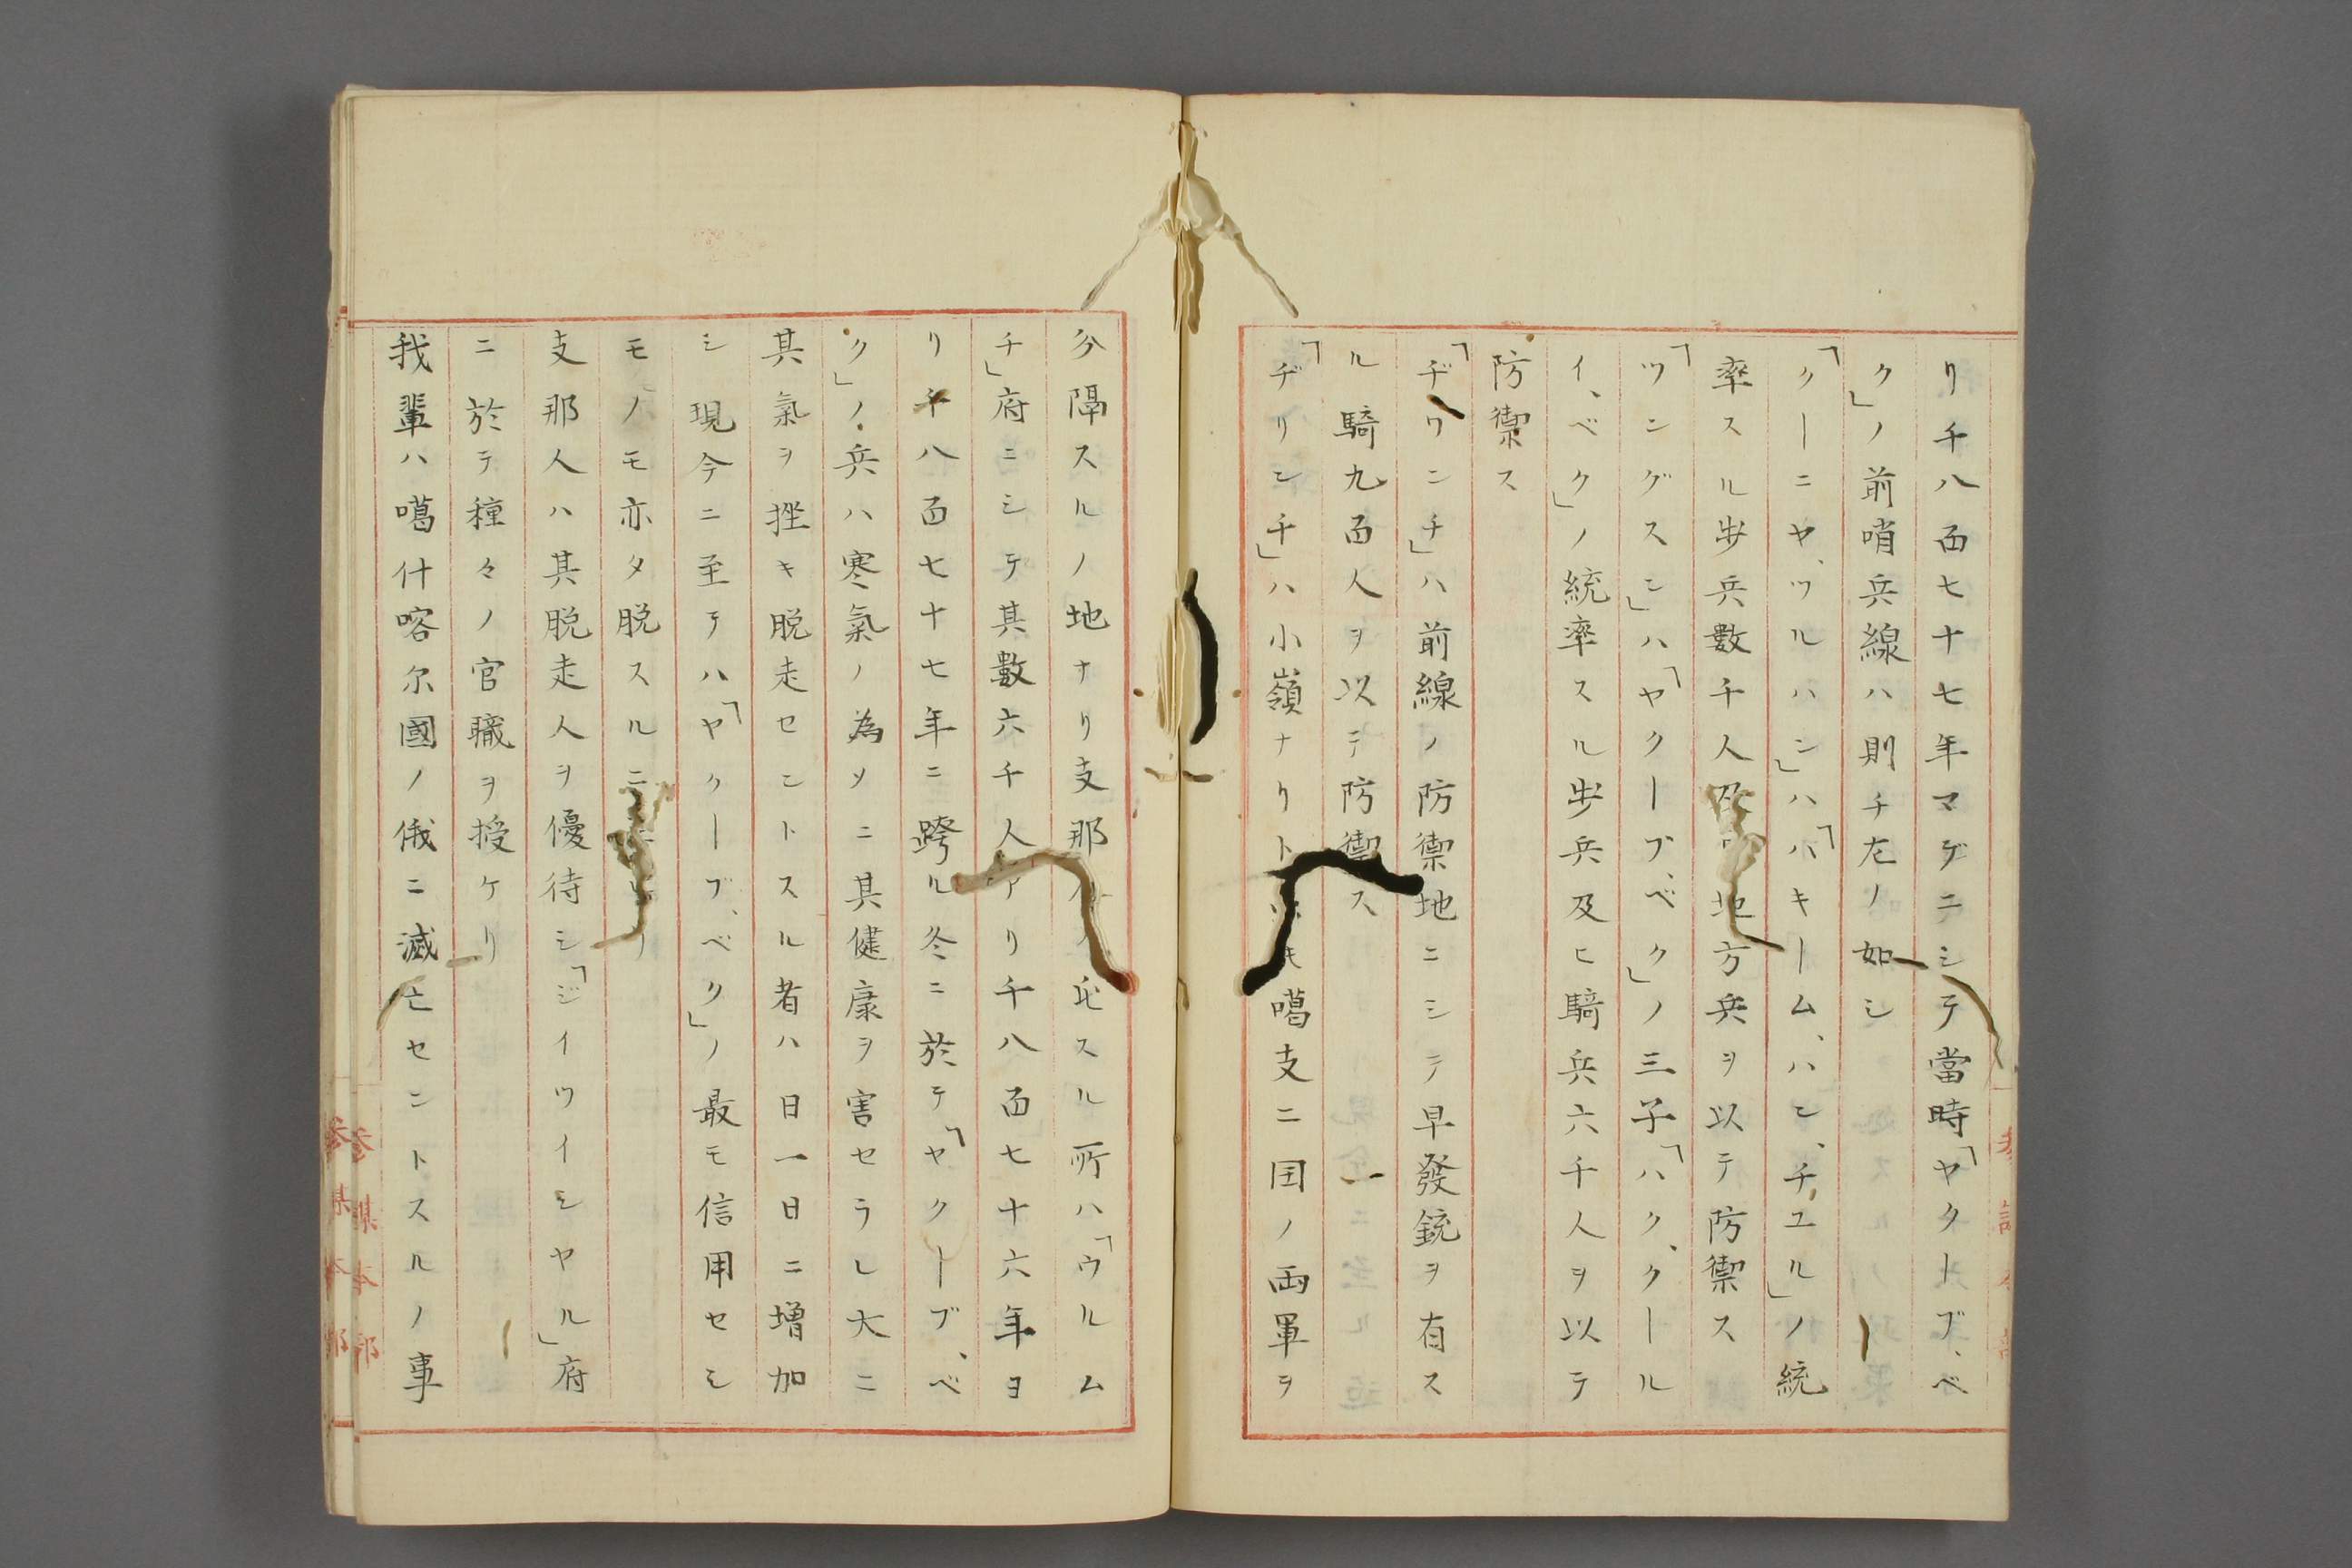 リ千八百七十七年マデニシテ當時「ヤクーブ、ベ
ク」ノ前哨兵線ハ則チ左ノ如シ
「クーニヤ、ツルハン」ハ「バキーム、ハン、チユル」ノ統
率スル歩兵數千人 地方兵ヲ以テ防禦ス
「ツングスン」ハ「ヤクーブ、ベク」ノ三子「ハク、クール
イ、ベク」ノ統率スル歩兵及ヒ騎兵六千人ヲ以テ
防禦ス
「ヂワンチ」ハ前線ノ防禦地ニシテ早發銃ヲ有ス
ル騎九百人ヲ以テ防禦ス
「ヂリンチ」ハ小嶺ナリト モ噶支二国ノ両軍ヲ
分隔スルノ地ナリ支那 スル所ハ「ウルム
チ」府ニシテ其數六千人アリ千八百七十六年ヨ
リ千八百七十七年ニ跨ル冬ニ於テ「ヤクーブ、ベ
ク」ノ兵ハ寒氣ノ為メニ其健康ヲ害セラレ大ニ
其氣ヲ挫キ脱走セントスル者ハ日一日ニ増加
シ現今ニ至テハ「ヤクーブ、ベク」ノ最モ信用セシ
モノモ亦タ脱スルニ リ
支那人ハ其脱走人ヲ優待シ「ジイワイシヤル」府
ニ於テ種々ノ官職ヲ授ケリ
我輩ハ噶什喀尔國ノ俄ニ滅亡セントスルノ事
參謀本部